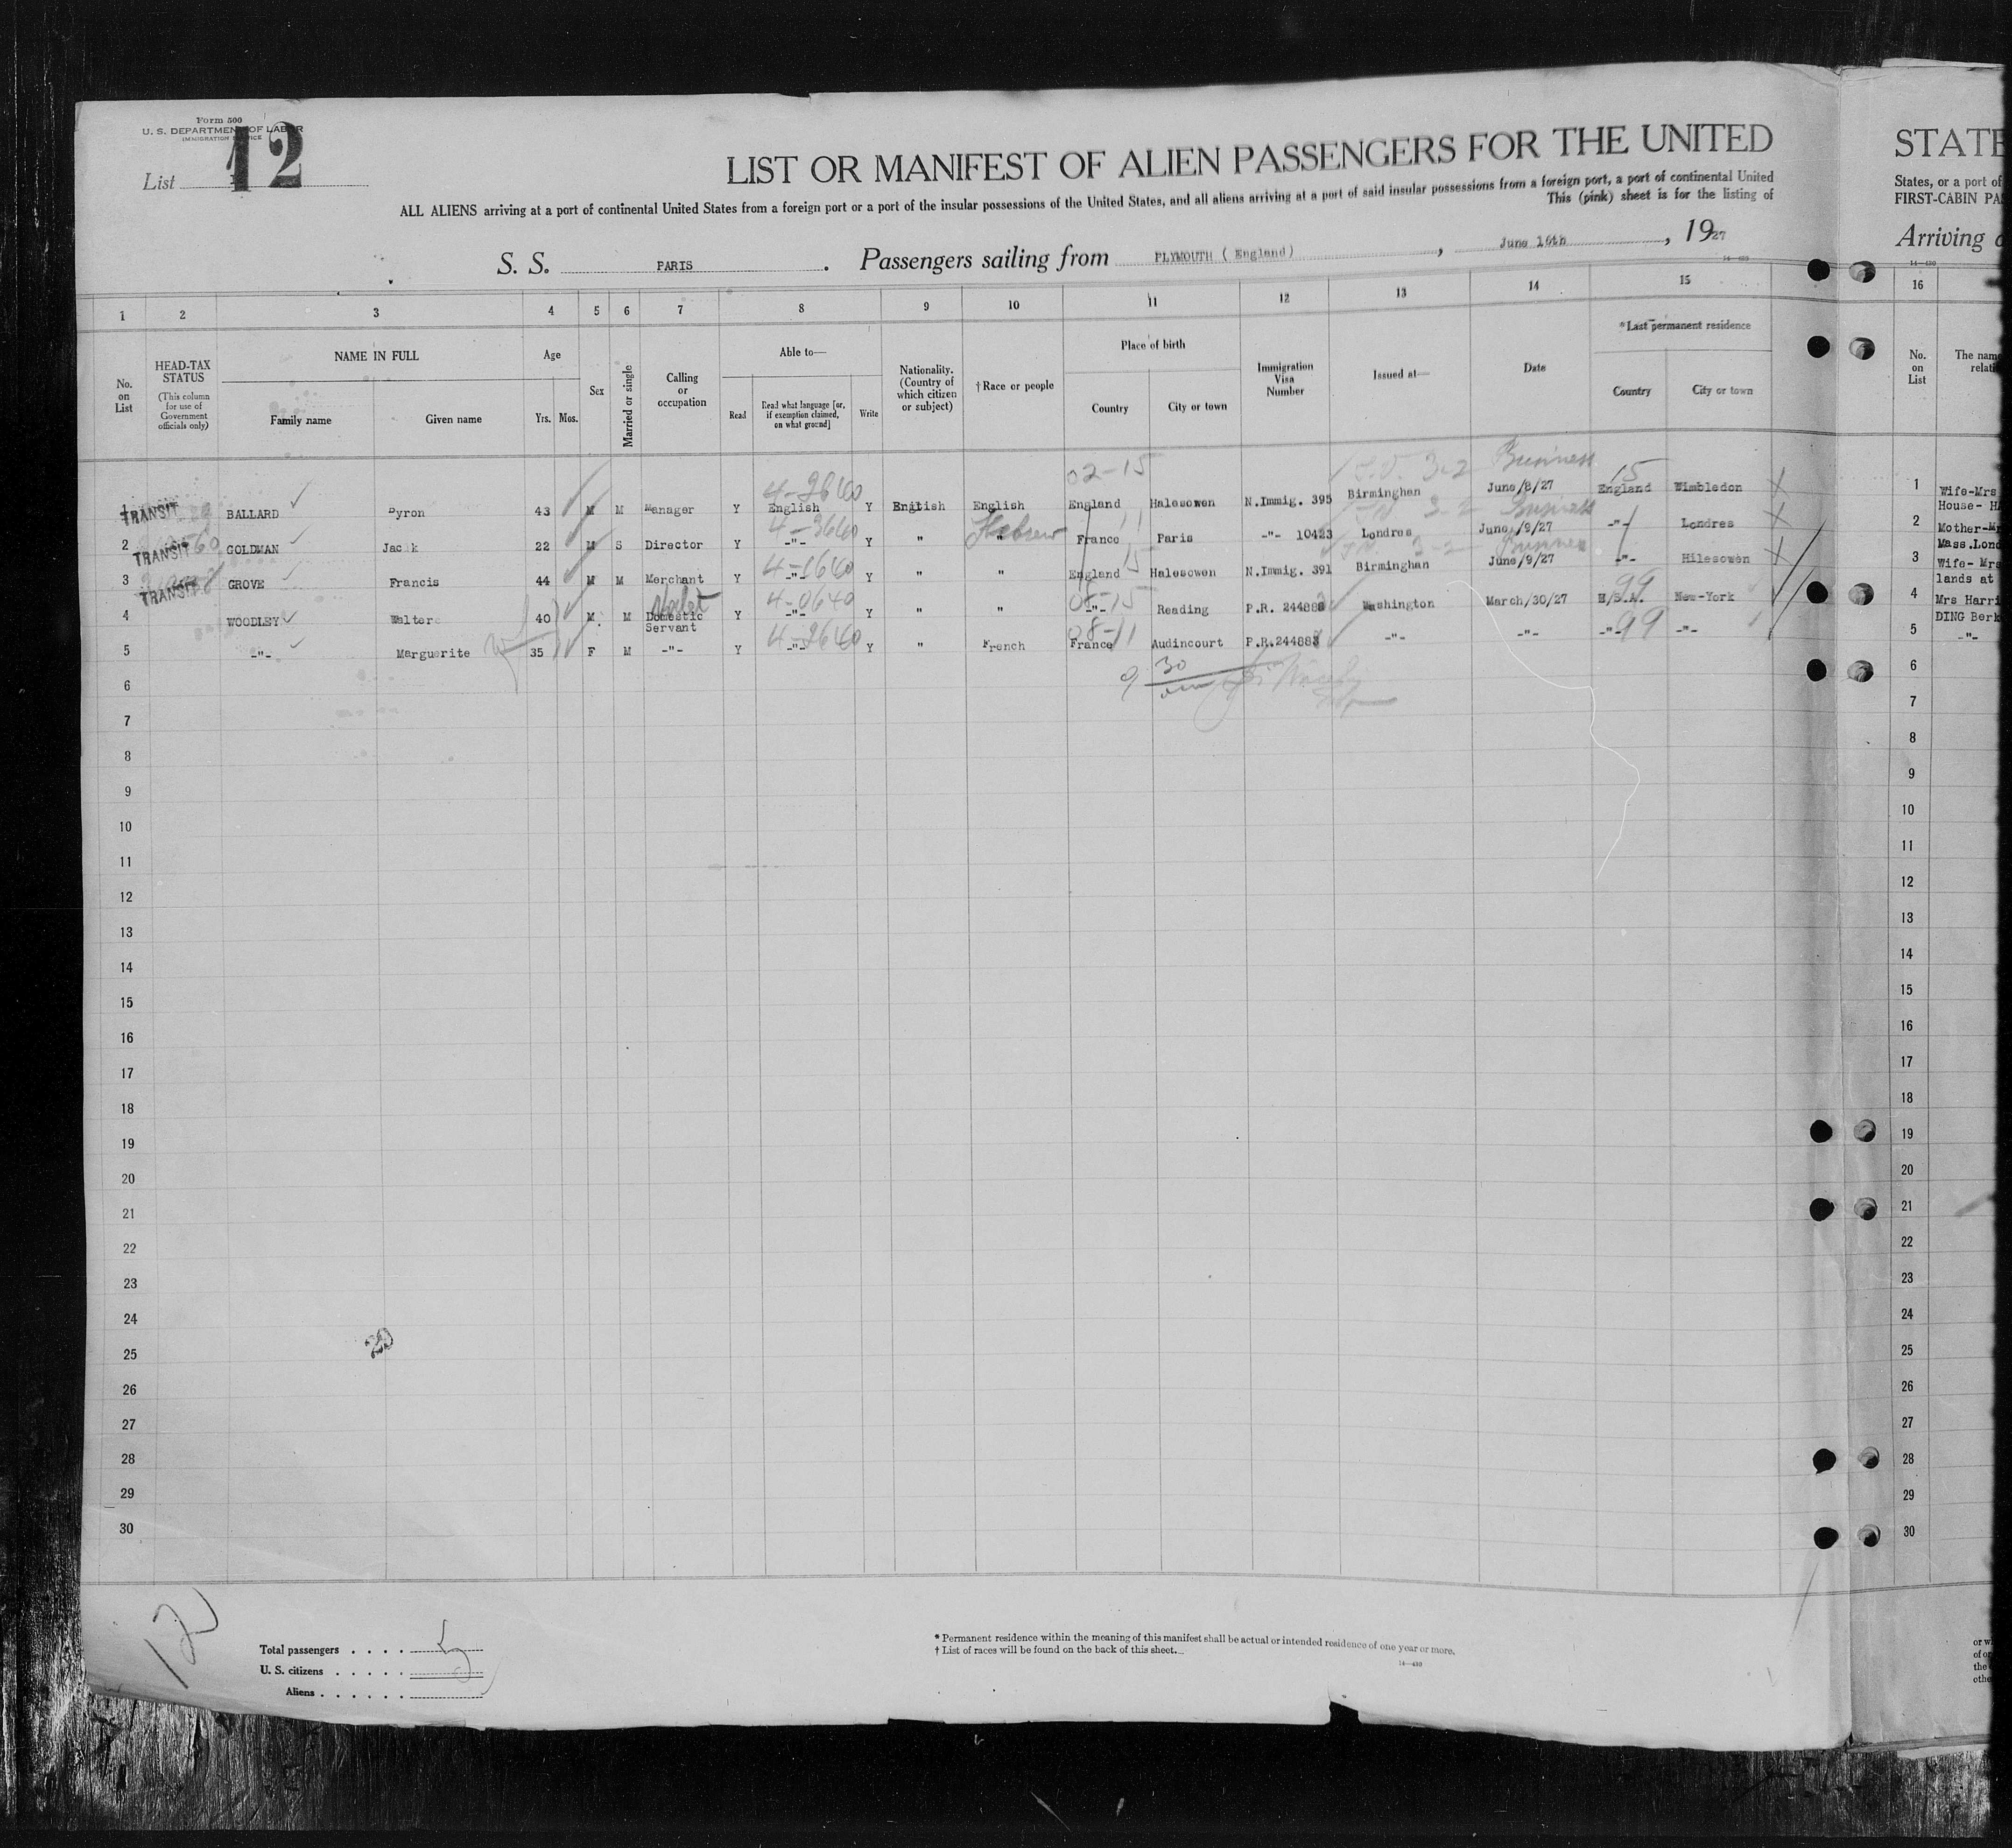 Form 500
U. S. DEPARTMENT OF LABOR
IMMIGRATION SERVICE
List 12
LIST OR MANIFEST OF ALIEN PASSENGERS FOR THE UNITED
ALL ALIENS arriving at a port of continental United States from a foreign port or a port of the insular possessions of the United States, and all aliens arriving at a port of said insular possessions from a foreign port, a port of continental United
This (pink) sheet is for the listing of
S. S. PARIS. Passengers sailing from PLYMOUTH ( England), June 16th, 1927
14—430
1 2 3 4 5 6 7 8 9 10 11 12 13 14 15
No. on List
HEAD-TAX STATUS (This column for use of Government officials only)
NAME IN FULL Family name Given name
Age Yrs. Mos.
Sex
Married or single
Calling or occupation
Able to— Read Read what language [or, if exemption claimed, on what ground] Write
Nationality. (Country of which citizen or subject)
†Race or people
Place of birth Country City or town
Immigration Visa Number
Issued at—
Date
*Last permanent residence Country City or town
02-15 3-2 Business 15
1 TRANSIT BALLARD Byron 43 M M Manager Y English Y English English England Halesowen N.Immig. 395 Birmingham June/8/27 England Wimbledon
4-3660 Hebrew 11 3-2 Business
2 TRANSIT GOLDMAN Jack 22 M S Director Y -"- Y " " France Paris -"- 10423 Londres June/9/27 -"- Londres
15 3-2 Business
3 TRANSIT GROVE Francis 44 M M Merchant Y -"- Y " " England Halesowen N.Immig. 391 Birmingham June/9/27 -"- Hilesowen
Valet 4-0640 08-15 99
4 WOODLEY Walter 40 M M Domestic Servant Y -"- Y " " -"- Reading P.R. 244888 Washington March/30/27 U/S.A. New-York
08-11 99
5 -"- Marguerite 35 F M -"- Y -"- Y " French France Audincourt P.R.244883 -"- -"- -"- -"-
9 30
6
7
8
9
10
11
12
13
14
15
16
17
18
19
20
21
22
23
24
25
26
27
28
29
30
20
12
Total passengers . . . . 5
U. S. citizens . . . . .
Aliens . . . . . .
* Permanent residence within the meaning of this manifest shall be actual or intended residence of one year or more.
† List of races will be found on the back of this sheet.
14—430
STATE
States, or a port of
FIRST-CABIN PA
Arriving
14—430
16
No. on List
The name
relati
1 Wife-Mrs
House- H
2 Mother-Mr
Mass.Lond
3 Wife- Mrs
lands at
4 Mrs Harri
DING Berk
5 -"-
6
7
8
9
10
11
12
13
14
15
16
17
18
19
20
21
22
23
24
25
26
27
28
29
30
or w
of or
the
othe